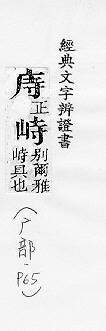 經典文字辨證書
庤正峙別爾雅
峙具也
(广部-P65)